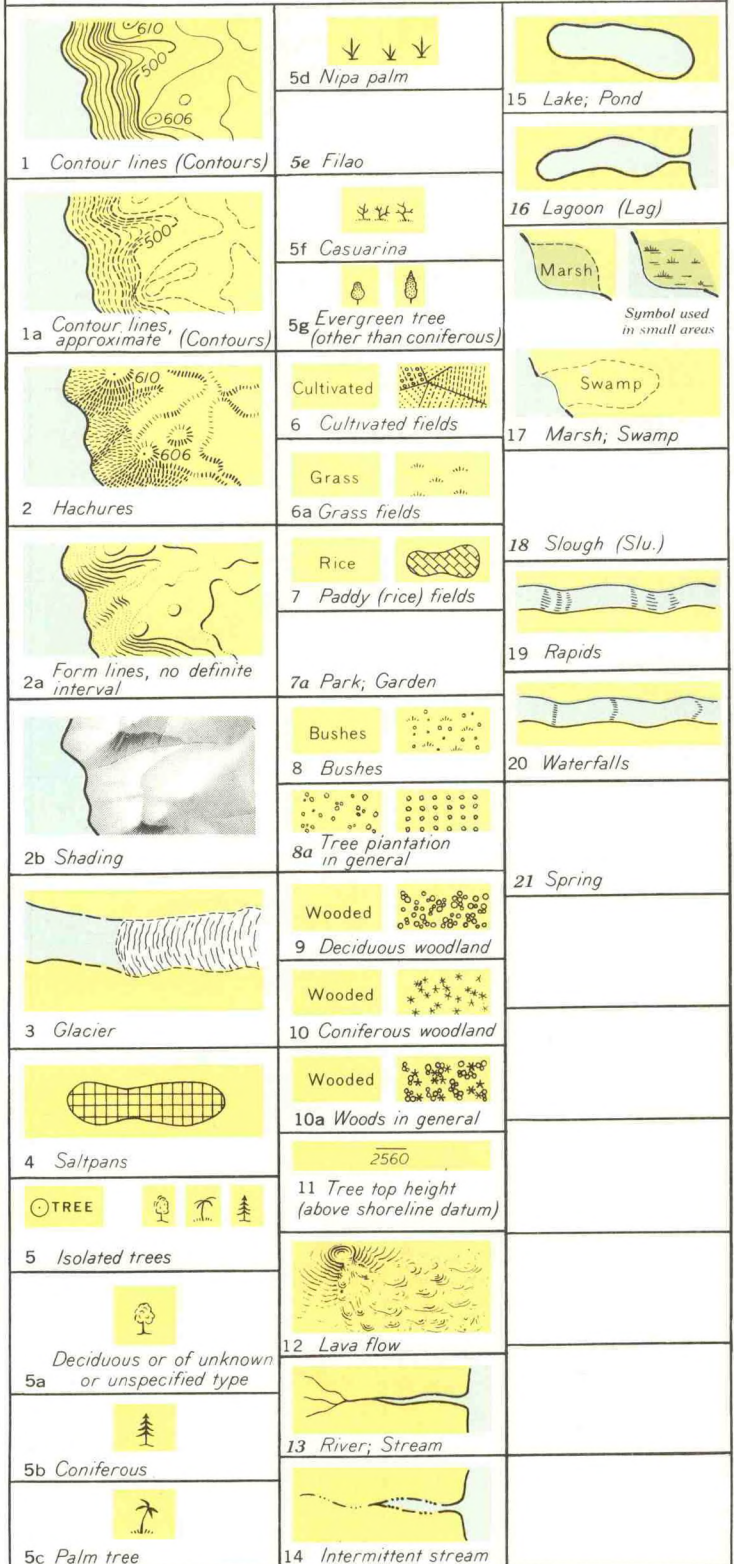 610
500
606
1 Contour lines (Contours)
500
1a Contour lines,
approximate (Contours)
610
606
2 Hachures
2a Form lines, no definite
interval
2b Shading
3 Glacier
4 Saltpans
TREE
5 Isolated trees
Deciduous or of unknown
5a or unspecified type
5b Coniferous
5c Palm tree
5d Nipa palm
5e Filao
5f Casuarina
5g Evergreen tree
(other than coniferous)
Cultivated
6 Cultivated fields
Grass
6a Grass fields
Rice
7 Paddy (rice) fields
7a Park; Garden
Bushes
8 Bushes
8a Tree plantation
in general
Wooded
9 Deciduous woodland
Wooded
10 Coniferous woodland
Wooded
10a Woods in general
2560
11 Tree top height
(above shoreline datum)
12 Lava flow
13 River; Stream
14 Intermittent stream
15 Lake; Pond
16 Lagoon (Lag)
Marsh
Symbol used
in small areas
Swamp
17 Marsh; Swamp
18 Slough (Slu.)
19 Rapids
20 Waterfalls
21 Spring